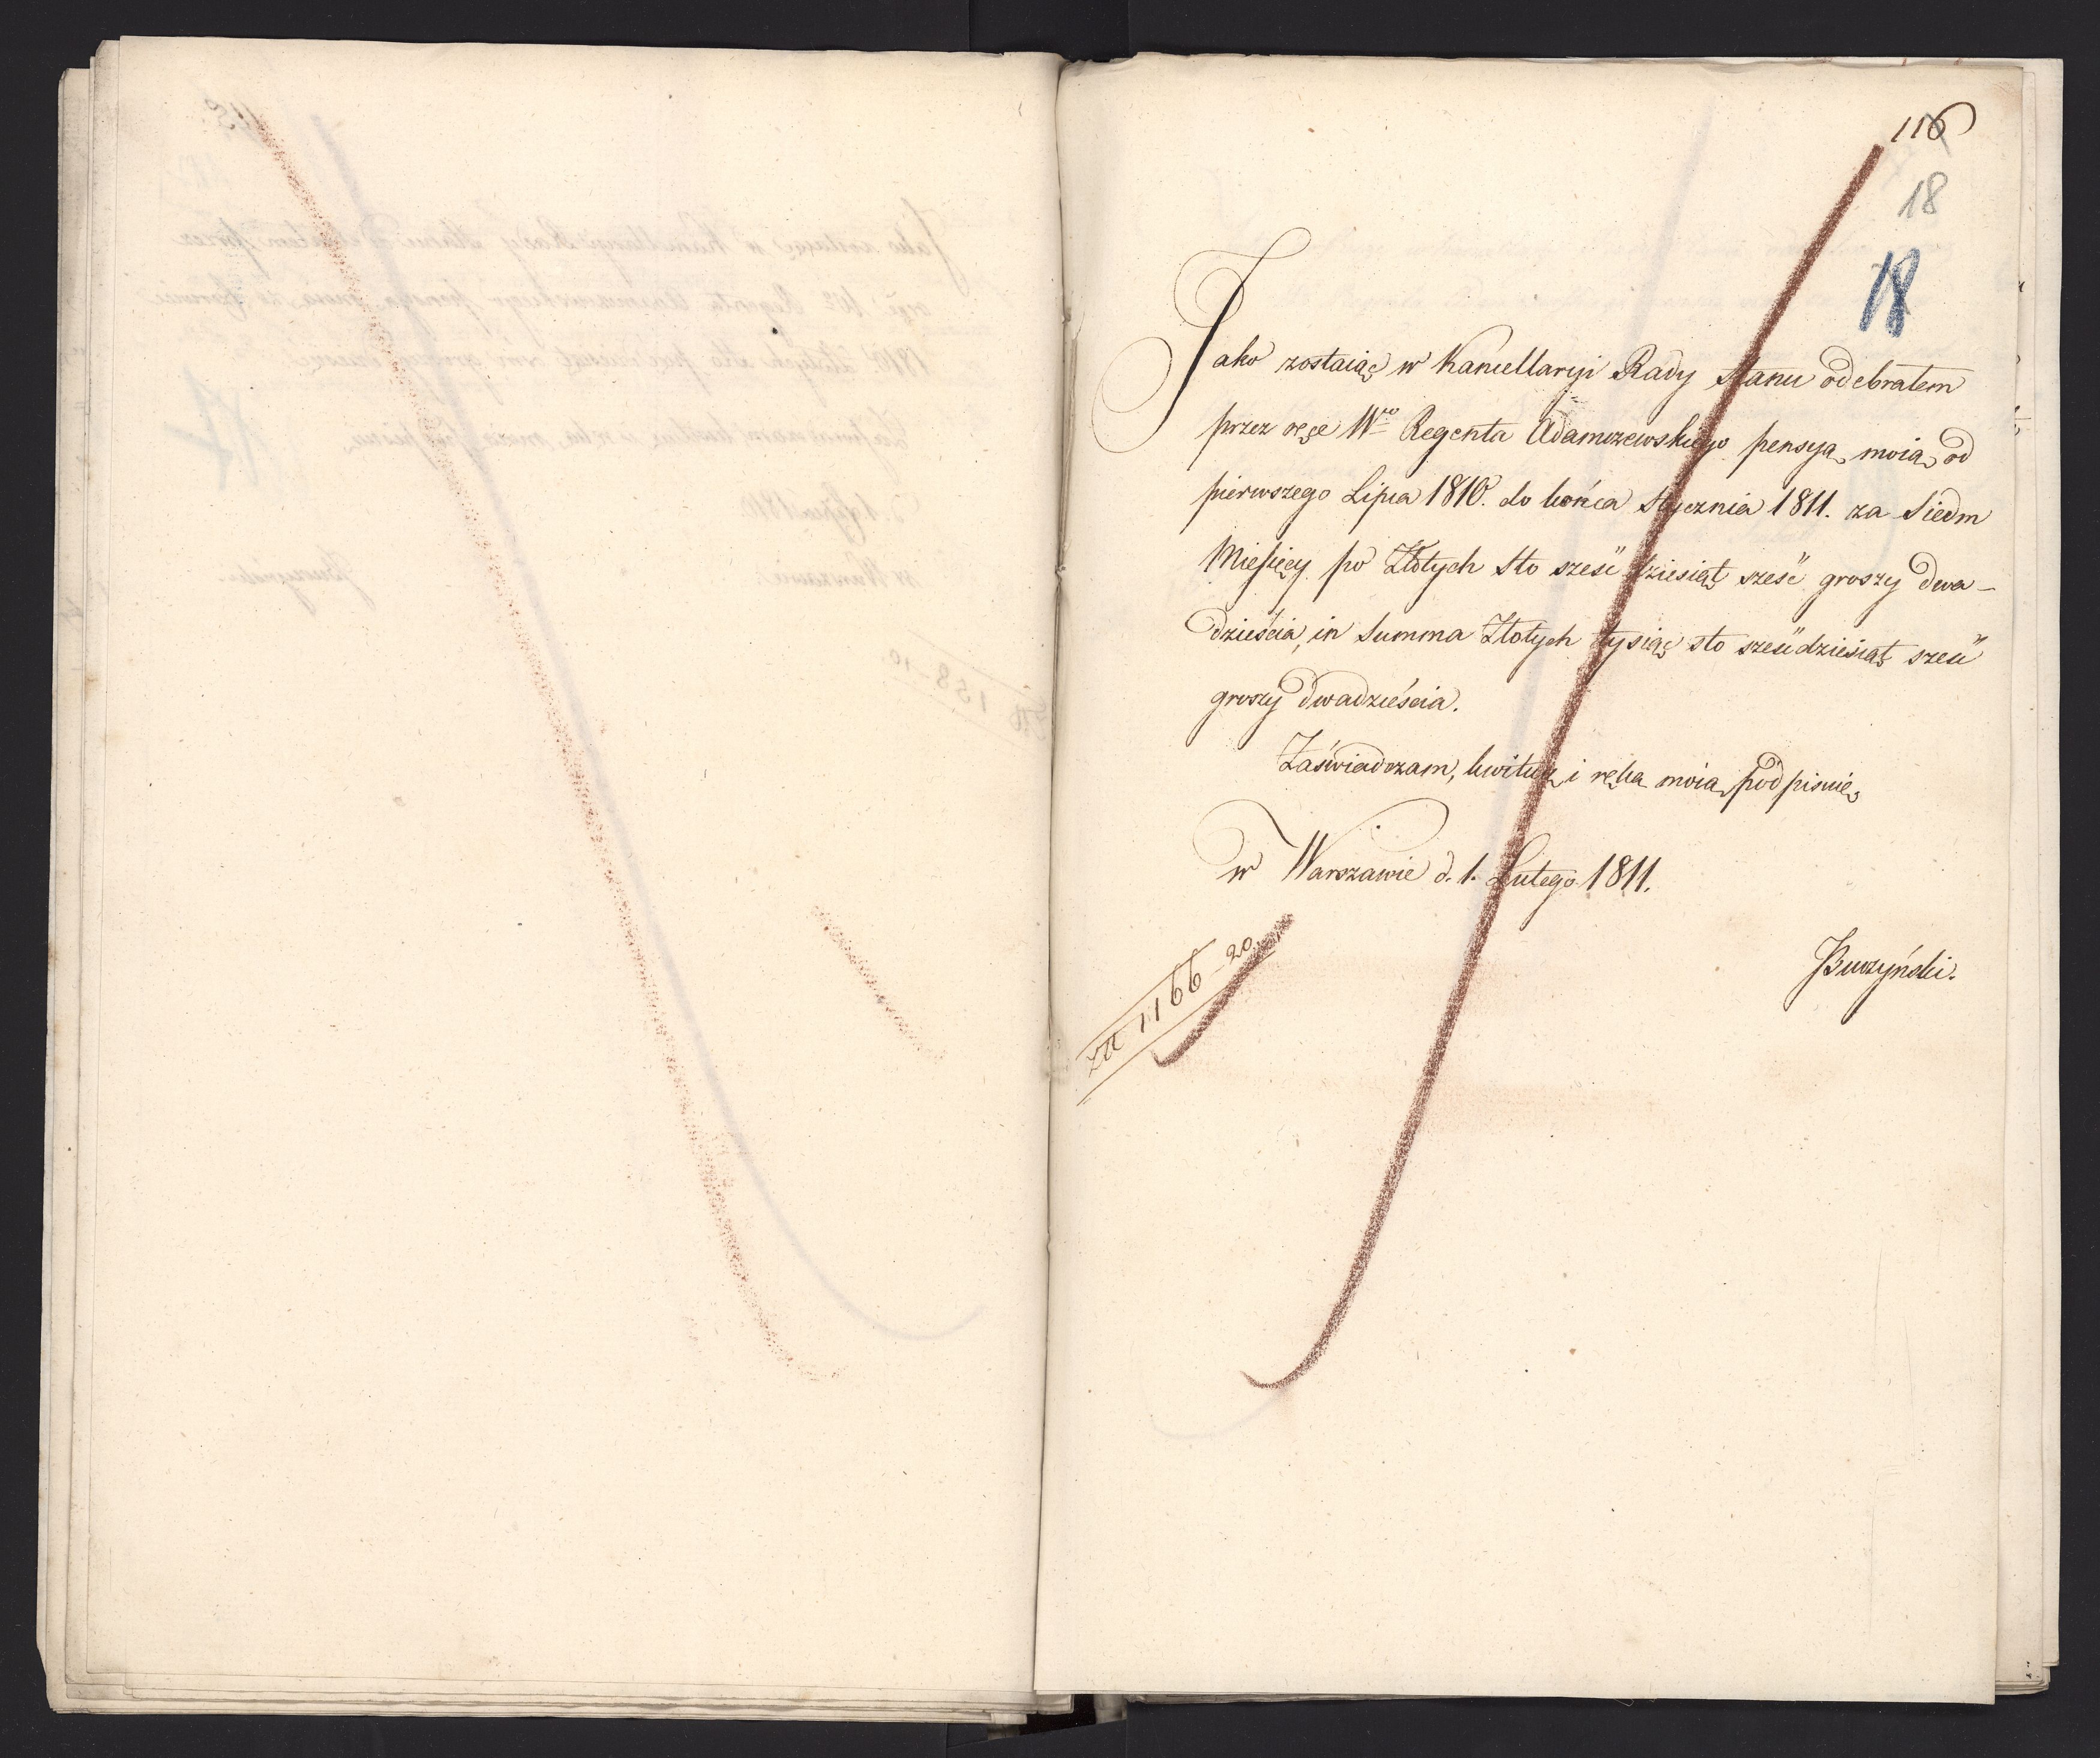 116
18
18
Jako zostaiąc w Kancellaryi Rady Stanu odebrałem
przez ręce Wgo Regenta Adamczewskiego pensyą moią od
pierwszego Lipca 1810. do końca Stycznia 1811. za Siedm
Miesięcy po Złotych Sto sześćdziesiąt sześć groszy dwa-
dzieścia, in Summa Złotych tysiąc sto sześćdziesiąt sześć
groszy dwadzieścia.
Zaświadczam, kwituię i ręką moią podpisuię
w Warszawie d. 1. Lutego 1811.
Złł 1166-20.
Buczyński.